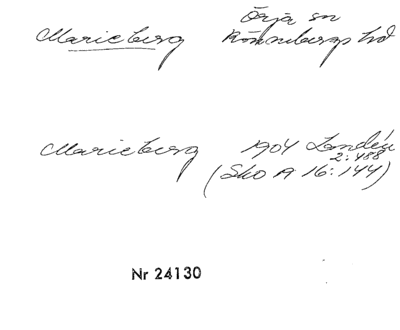 Örja sn
Marieberg Rönnebergs hd
Marieberg 1904 Landén
2:488
(Sko A 16:144)
Nr 24130